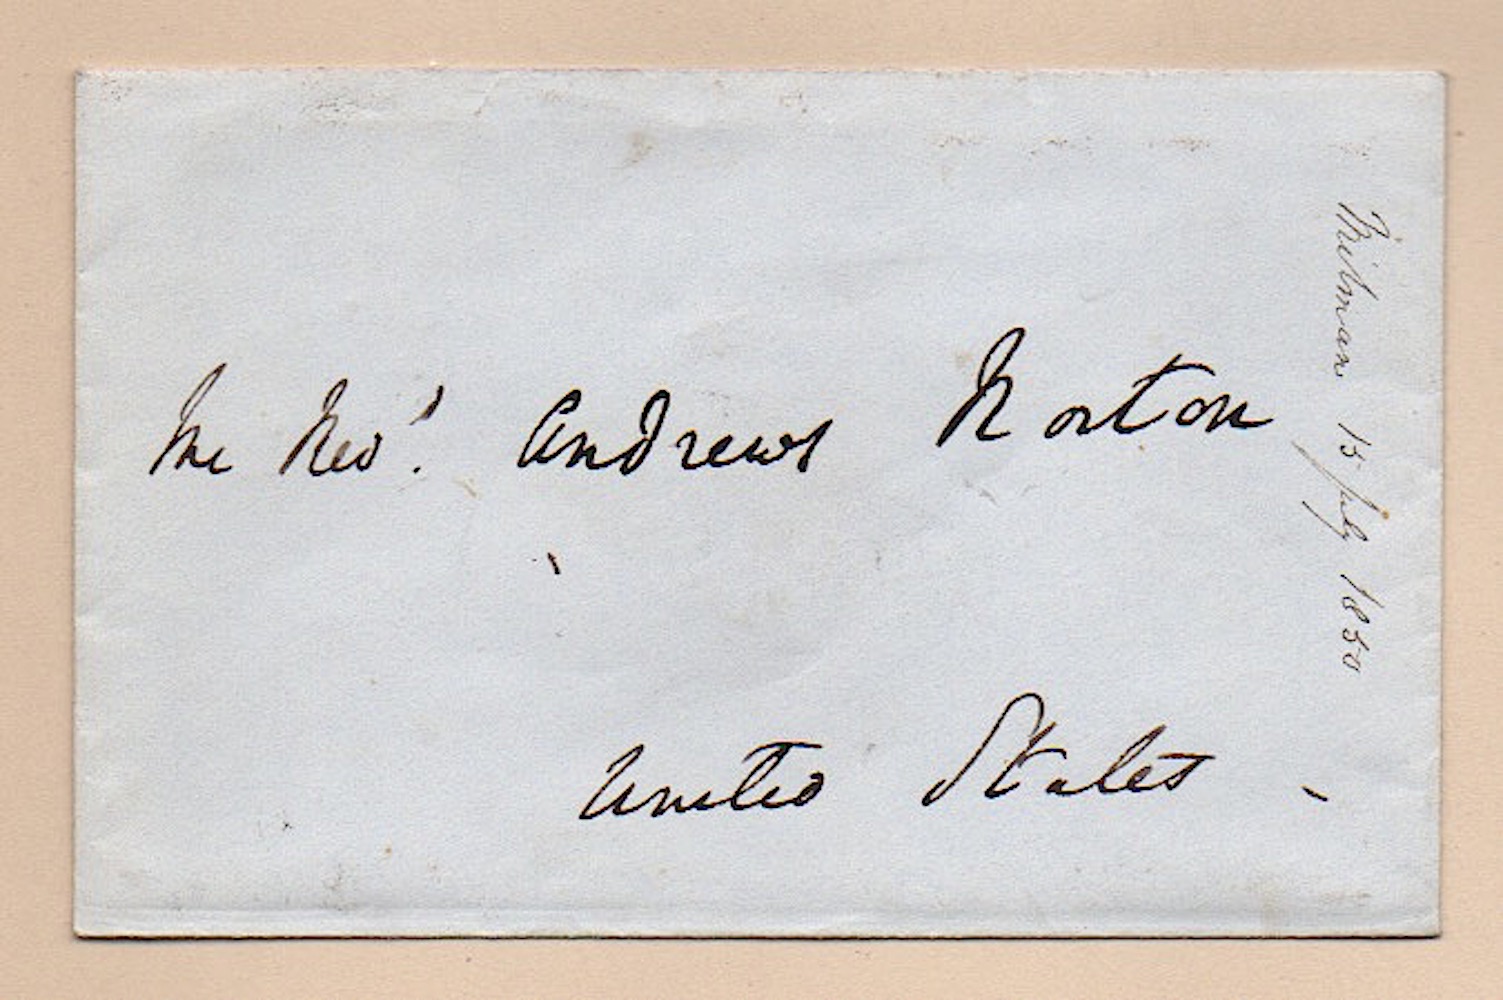 The Revd. Andrews Norton
United States -
Milman 15 July 1850